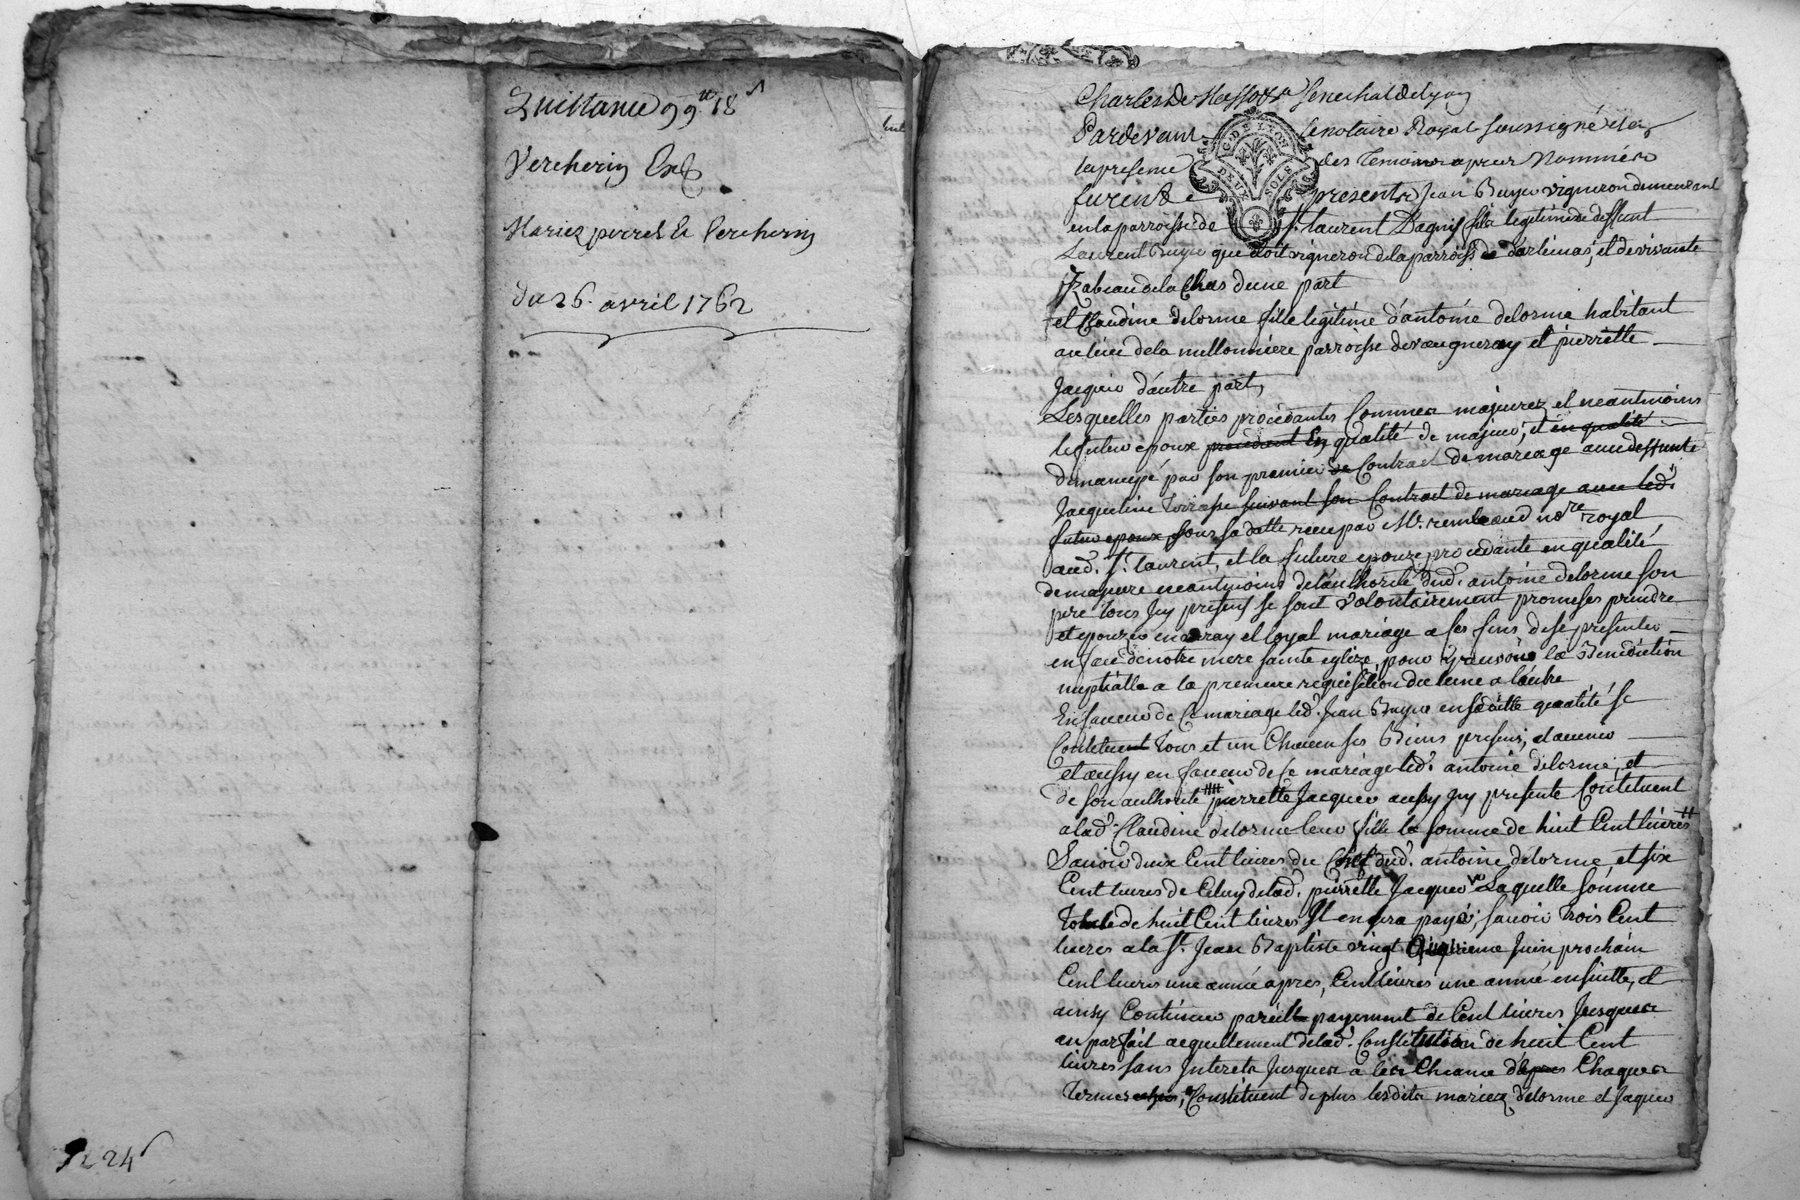 Quittance 99lt 18s
Vercherin
Mariez perret & Vercherin
du 26. avril 1762
Charles de Senechal de Lyon
Pardevant le notaire Royal soussigné et en
la presence des temoins apres Nommés
furent presents Jean Buyer vigneron demeurant
en la parroisse de St. laurent Dagny fils legitime de deffunt
Laurent Buyer que étoit vigneron de la parroisse de et de vivante
Izabeau de la Chas d'une part
et Claudine delorme fille legitime d'antoine delorme habitant
au lieu de la millonniere parroisse de vaugneray et pierrette
Jaquier d'autre part,
Lesquelles parties procedantes Comme majeures et neantmoins
le futur époux procedant En qualité de majeur, et en qualité
démancipé par son premier de Contract de mariage avec deffunte
Jacqueline terrasse suivant son Contract de mariage avec led.
futur epoux sous sa datte receu par Mr. rembeaud nore royal
aud. St. laurent, et la future epouze procedante en qualité
de majeure neantmoins de l'authorité dud. antoine delorme son
pere tous Jcy presens se sont volontairement promeses prendre
et epouzer en vray et loyal mariage a ses fins de se presenter
en face de notre mere sainte eglize, pour y recevoir la Benediction
nuptialle a la premiere requisition de lune a lautre
En faveur de Ce mariage led. Jean Buyer en saditte qualité se
Constituent tous et un Chacun ses Biens presens, et avenir
et aussy en faveur de se mariage led. antoine delorme, et
de son authorité pierrette Jacquer aussy Jcy presente Constituent
a lad. Claudine delorme leur fille la somme de huit Cent livres
Savoir deux Cent livres du Chef dud. antoine delorme et six
Cent livres de Celuy de lad. pierrette Jacquer Laquelle somme
totale de huit Cent livres Il en sera payé, savoir trois Cent
livres a la St. Jean Baptiste vingt quatrieme Juin prochain
Cent livres une année apres, Cent livres une année ensuitte, et
ainsy Continuer pareille payement de Cent livres Jusques
au parfait acquittement de lad. Constitution de huit Cent
livres sans Interets Jusques a lechéance d'apres Chaques
Termes Constituent de plus lesdits mariez delorme et Jaquer
C. DE LYON
DEUX SOLS